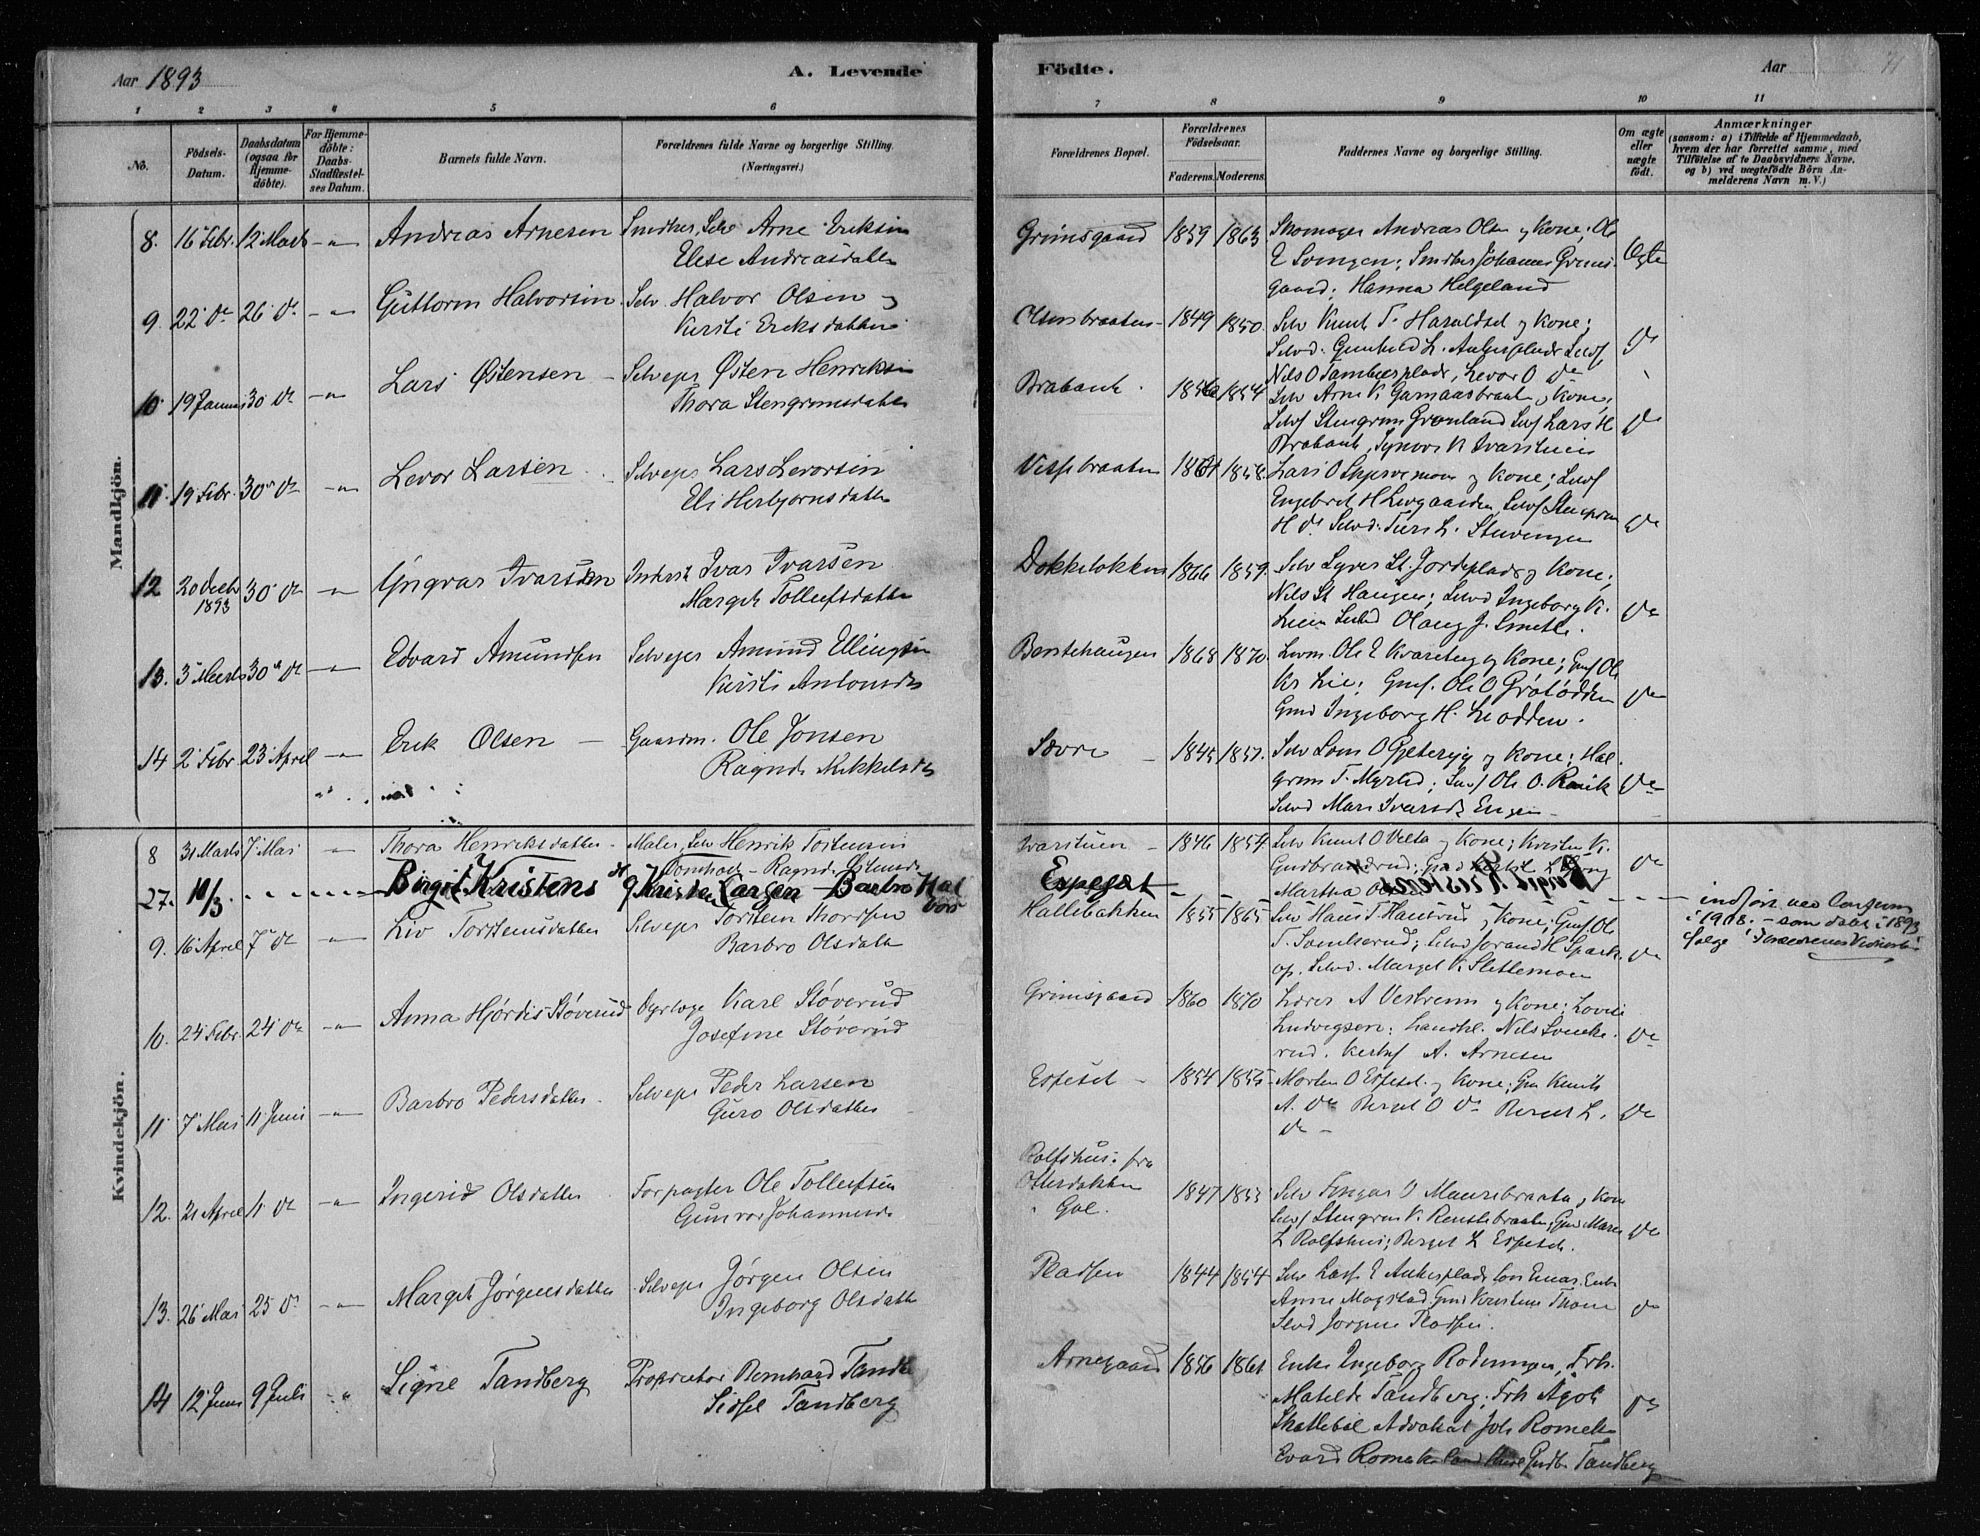 Aar 1893
A. Levende
Födte.
Aar
71
1 2 3 4 5 6
7 8 9 10 11
No.
Födsels-
Datum.
Daabsdatum
(ogsaa for
Hjemme-
döbte).
For Hjemme-
döbte:
Daabs-
Stadfæstel-
ses Datum.
Barnets fulde Navn.
Forældrenes fulde Navne og borgerlige Stilling.
(Næringsvei.)
Forældrenes Bopæl.
Forældrenes
Födselsaar.
Faderens. Moderens.
Faddernes Navne og borgerlige Stilling.
Om ægte
eller
uægte
födt.
Anmærkninger
(saasom: a) i Tilfælde af Hjemmedaab,
hvem der har forrettet samme, med
Tilföielse af to Daabsvidners Navne,
og b) ved uægtefödte Börn An-
melderens Navn m. V.)
Mandkjön.
8. 16 Febr. 12 Marts -"- Andreas Arnesen Snedker, Selv Arne Eriksen
Elise Andreasdatter
Grimsgaard 1859 1863 Skomager Andreas Olsen og Kone; Ole
E Svingen; Snedker Johannes Grims-
gaard; Hanna Helgeland
Ægte
9. 22 de 26 de -"- Guttorm Halvorsen Selv Halvor Olsen og
Kirsti Eriksdatter
Olsenbraaten 1849 1850 Selv Knut T. Haraldset og Kone;
Selvd. Gunhild L. Ankerplads Selvs.
Nils O Tambersplads, Levor O de
de
10 19 Januar 30 de -"- Lars Østensen Selveier Østen Henriksen
Thora Stengrimsdatter
Brabant 1854 Selv Arne K. Garnaasbraaten og Kone;
Selvs Stengrim Grønland Selvs Lars H
Brabant, Synnøv K Ivarstuen
de
11 19 Febr. 30 de -"- Levor Larsen Selveier Lars Levorsen
Eli Herbjørnsdatter
1858 Lars O Skjervemoen og Kone; Selvs
Engebret H Livgaarden, Selvs Stengrim
H de Selvd. Turi L. Stuvengen
de
12 20 Decbr 30 de -"- Yngvar Ivarsen Inderst Ivar Ivarsen
1893
Margit Tollefsdatter
Dokkeløkken 1866 1859 Selv Syver St. Jordeplads og Kone;
Nils St Haugen; Selvd Ingeborg K.
Lien Selvd Olaug J. Smette.
de
13. 3 Marts 30 de -"- Edvard Amundsen Selveier Amund Ellingsen
Kirsti Antonsdr
Børstehaugen 1868 1870 Lærer Ole E Kvarteig og Kone; Gms. Ole
Kr Lie; Gms. Ole O Grøtødden
Gmd Ingeborg H. Liodden.
de
14 2 Febr 23 April -"- Erik Olsen Gaardm. Ole Jonsen
Ragnd. Mikkelsdr
Sævre 1845 1857 Selv Lars O Gjeterøyg og Kone; Hal-
grim T. Myrled; Selvs Ole O. Rønik
Selvd Mari Ivarsdr Engen
de
Kvindekjön.
8 31 Marts 7 Mai -"- Thora Henriksdatter Maler, Selv Henrik Torstensen
Ragnd. Østensdr
Ivarstuen 1846 1854 Selv Knut O Velta og Kone; Kirsten K.
Martha O
de
27. 10/3 Birgit Kristensdt. g. Kristen Larsen - Barbro Hal
vor
Espeset
indført ved Concern
i 1908. - som døbt i 1893
følge Forældrenes
9. 16 April 7 de -"- Liv Torstensdatter Selveier Torsten Thordsen
Barbro Olsdatter
Hallebakken 1855 1865 Selv Hans T. Haurud og Kone; Gms. Ole
T. Samlserud; Selvd Jorand H Spark-
op. Selvd. Margit K. Slettemoen
de
10. 24 Febr. 24 de -"- Anna Hjørdis Støverud Dyrlæge Karl Støverud
Josefine Støverud
Grimsgaard 1860 1870 Lærer A Vestrenn og Kone; Lovise
Ludvigsen; Landhl. Nils Svenke-
rud. Kirks A. Arnesen
de
11 7 Mai 11 Juni -"- Barbro Pedersdatter Selveier Peder Larsen
Guro Olsdatter
Espeset 1854 1855 Morten O Espeset og Kone; Gm Knut
A. de Birgit O de Bernt L.
de
de
12. 21 April 11 de -"- Ingerid Olsdatter Forpagter Ole Tollefsen
Gunvor Johannesdr
Rolfshus: fra
Ottersbakken
Gol.
1847 1853 Selv Fingar O Maurebraata og Kone
Selvs Stengrim K. Renslebraaten; Gmd Maren
L Rolfshus; Birgit L Espeset.
de
13. 26 Mai 25 de -"- Margit Jørgensdatter Selveier Jørgen Olsen
Ingeborg Olsdatter
Pladsen 1844 1854 Selv Lars E Ankerplads
Anne Magstad, Gmd Kristine Thoen
Selvd Jørgine Pladsen.
de
14 12 Juni 9 Juli -"- Signe Tandberg Proprietær Bernhard Tandb
Sidsel Tandberg
Arnegaard 1856 1861 Enke Ingeborg Rodningen, Frk.
Matilde Tandberg; Frk Agot
Skattebøl Advokat Joh Romek
Evard Romek Gudbr Tandberg
de